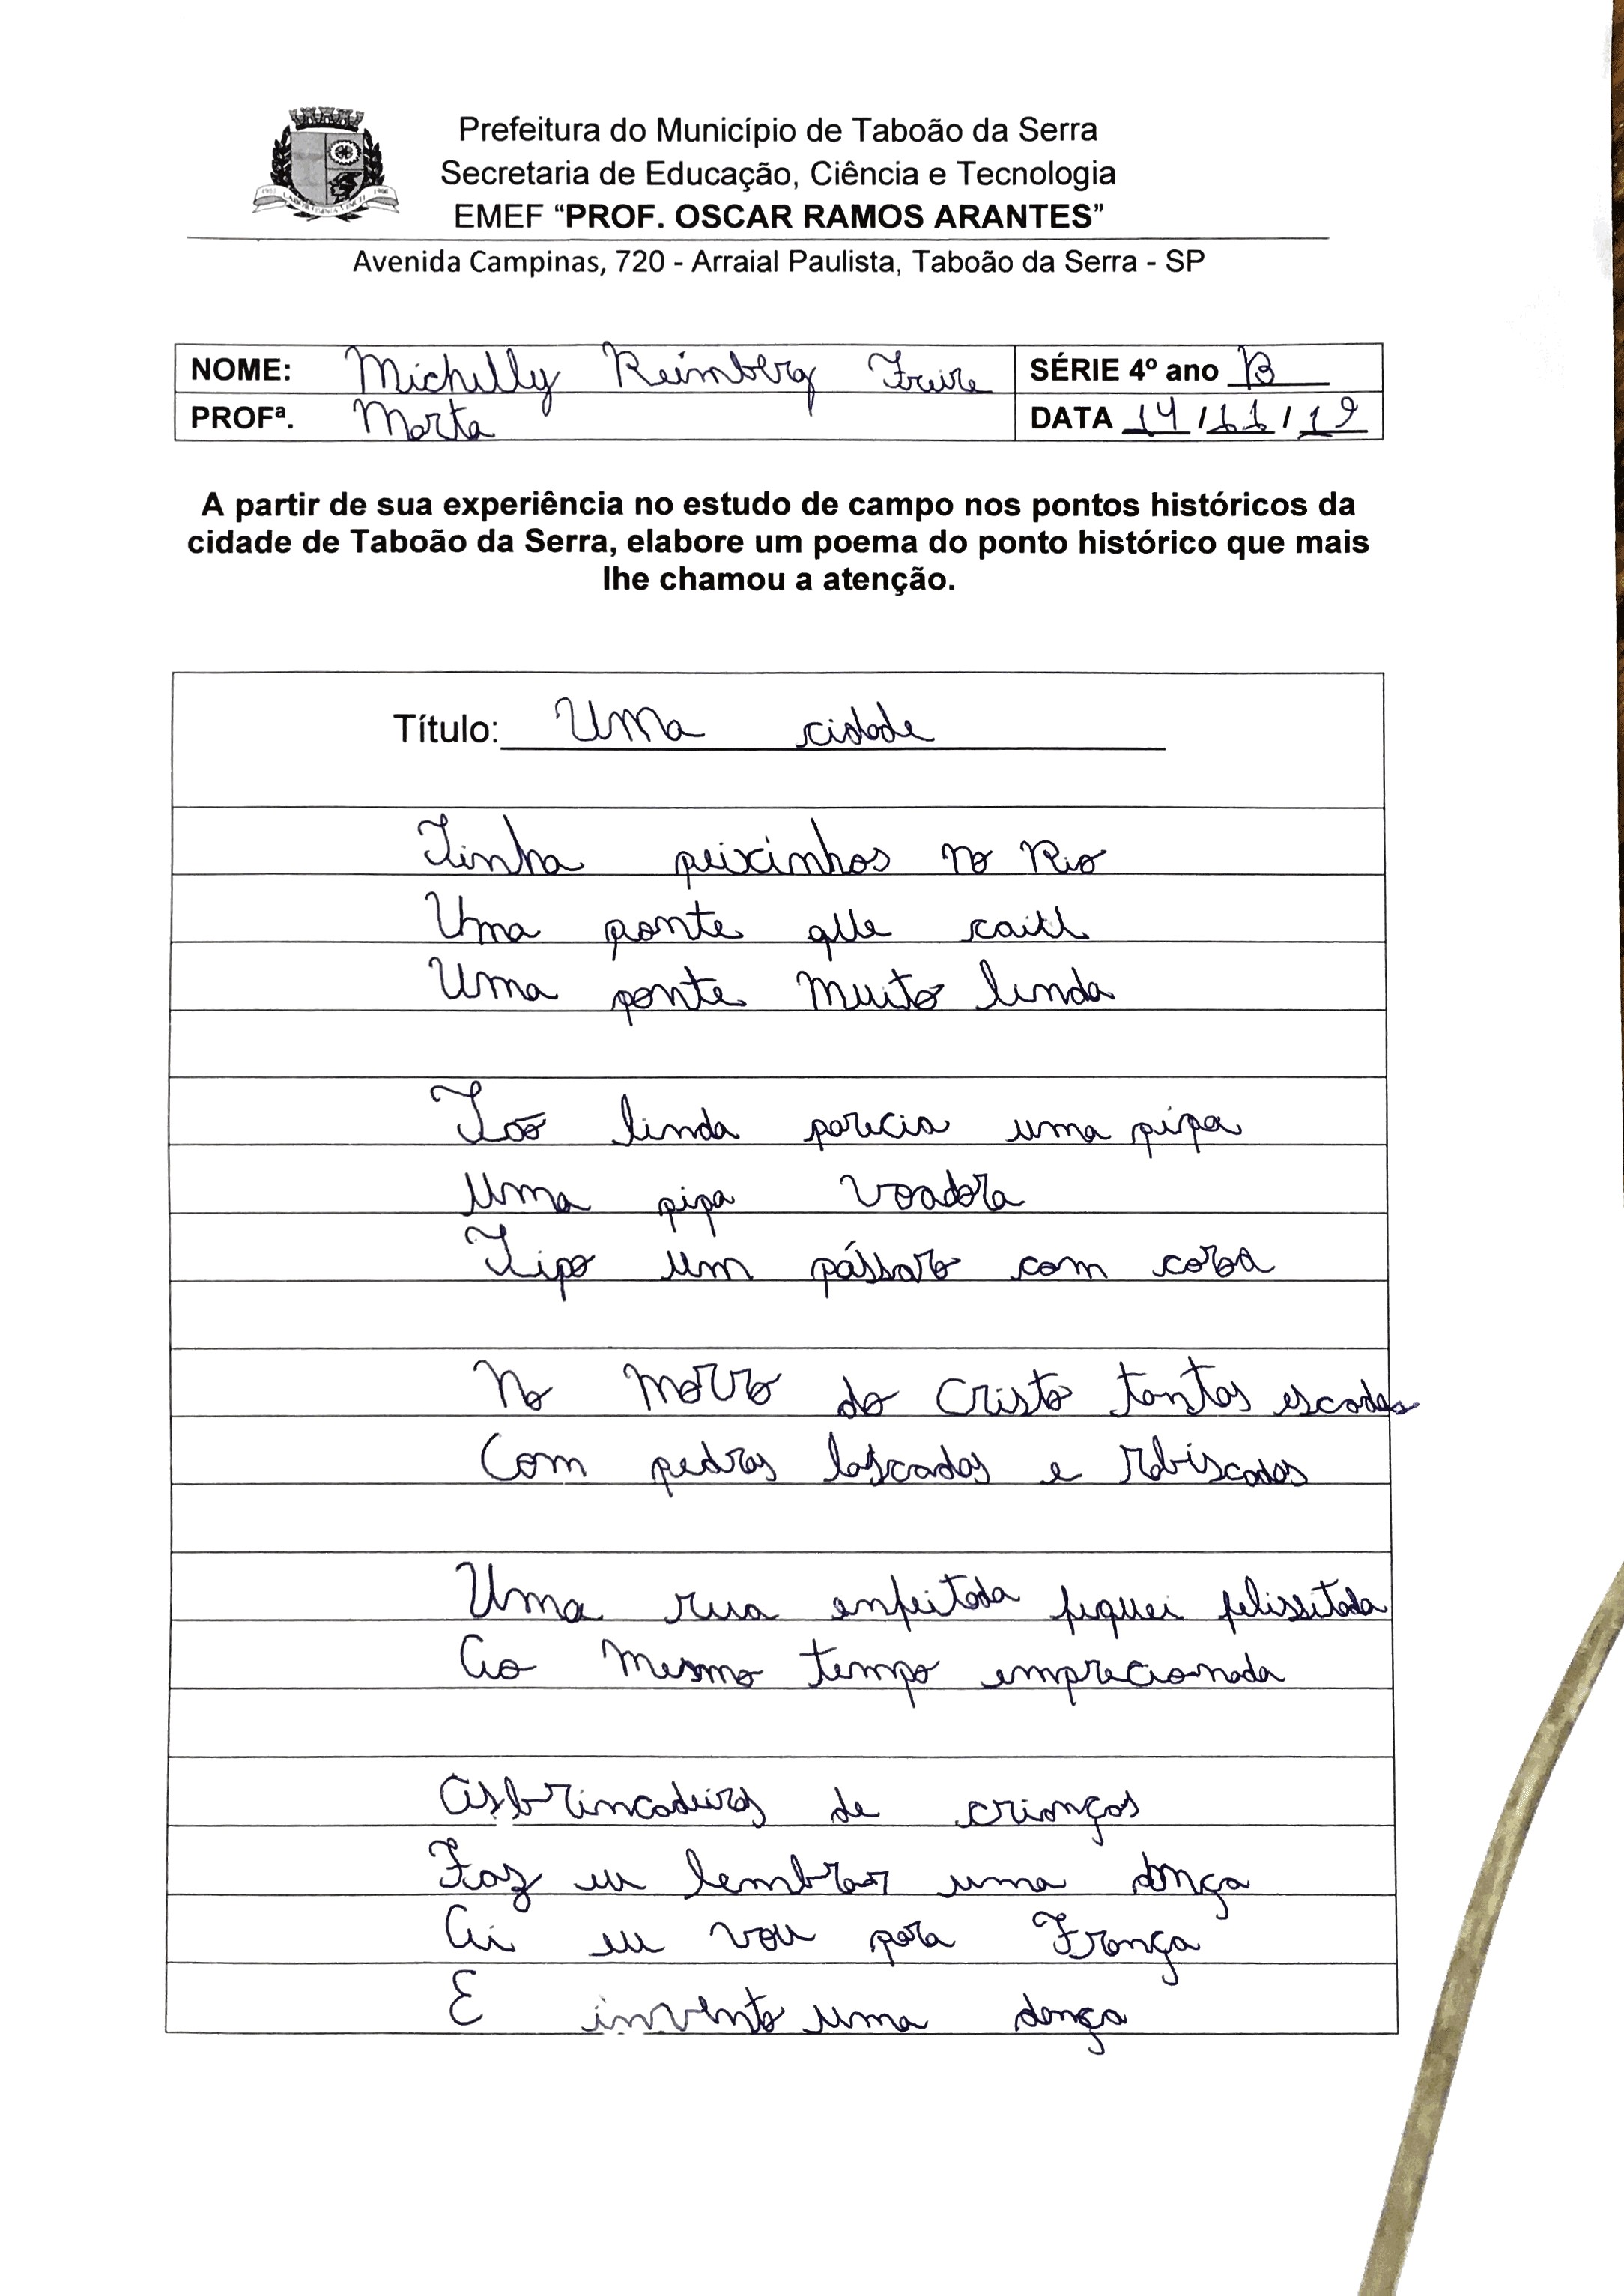 Prefeitura do Município de Taboão da Serra
Secretaria de Educação, Ciência e Tecnologia
EMEF “PROF. OSCAR RAMOS ARANTES”
Avenida Campinas, 720 - Arraial Paulista, Taboão da Serra - SP
NOME: Michelly Reimberg Freire SÉRIE 4º ano B
PROFª. Marta DATA 14/11/19
A partir de sua experiência no estudo de campo nos pontos históricos da
cidade de Taboão da Serra, elabore um poema do ponto histórico que mais
lhe chamou a atenção.
Título: Uma cidade
Tinha peixinhos no Rio
Uma ponte que caiu
Uma ponte muito linda
Tão linda parecia uma pipa
Uma pipa voadora
Tipo um pássaro com coroa
No morro do Cristo tantas escadas
Com pedras lascadas e rabiscadas
Uma rua enfeitada fiquei felissitada
Ao mesmo tempo emprecionada
As brincadeiras de crianças
Faz eu lembrar uma dança
Ai eu vou para França
E invento uma dança